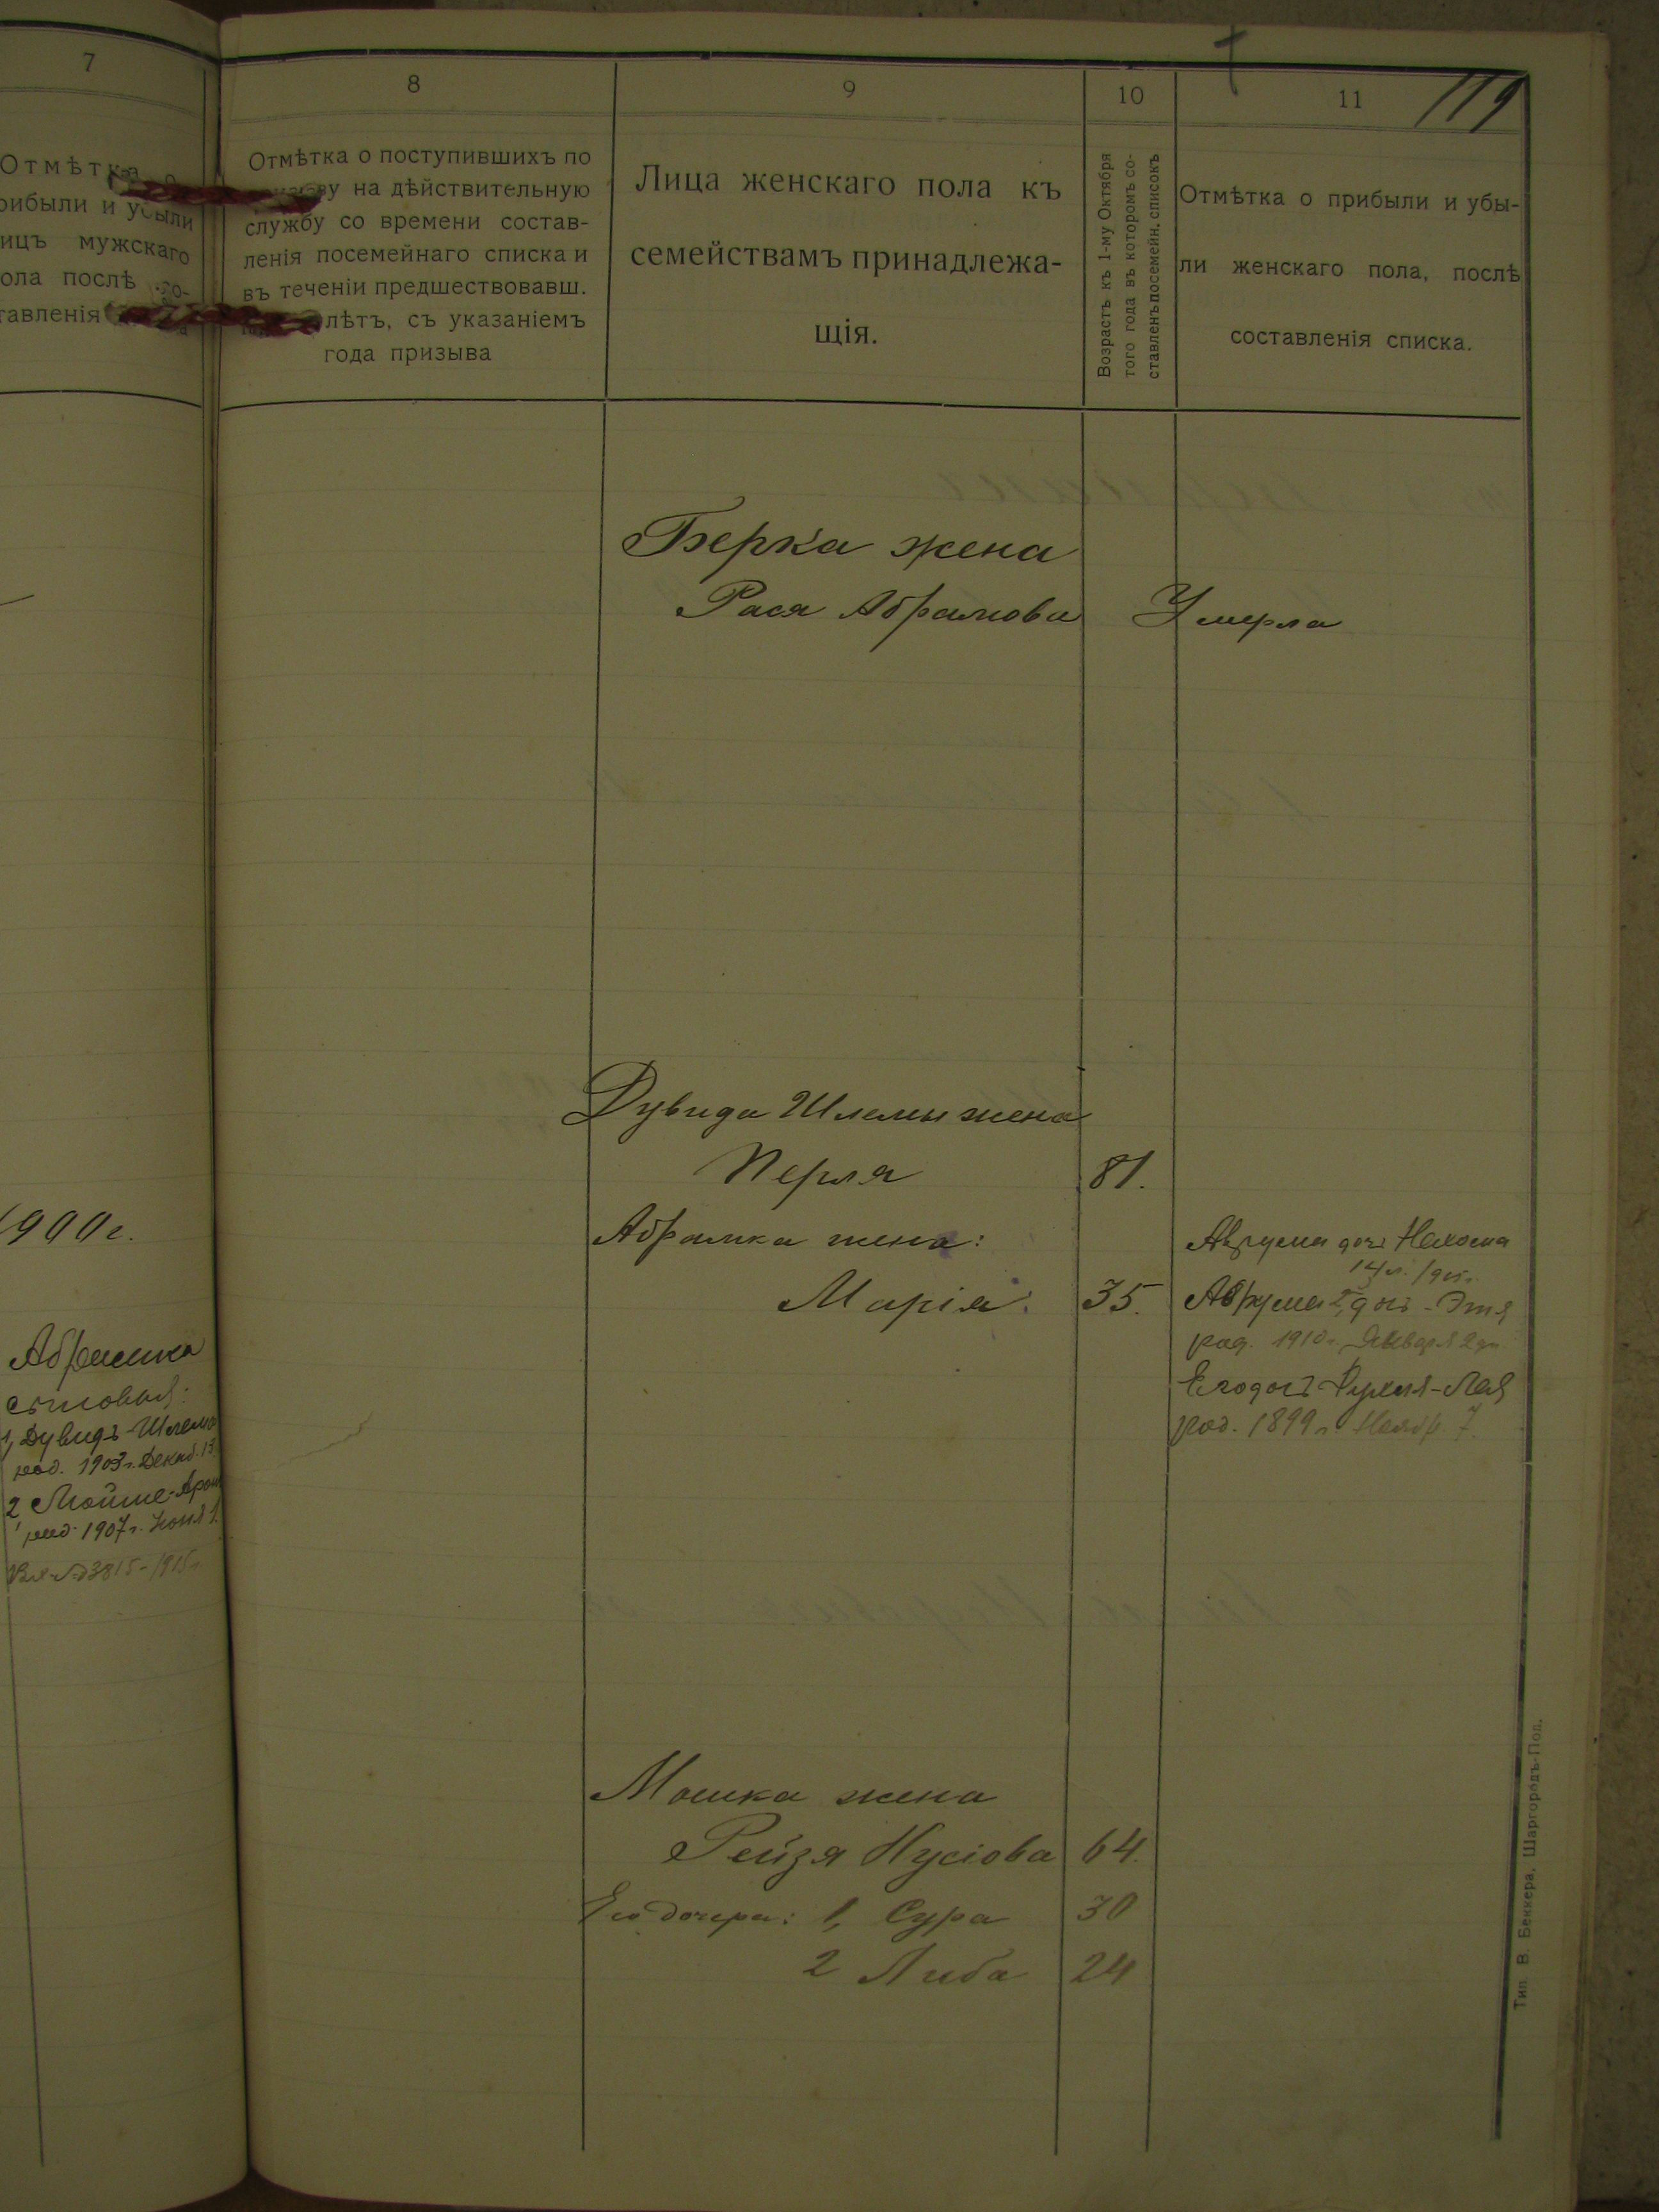 7
Отмѣтка о
рибыли и убыли
ицъ мужскаго
ола послѣ со-
тавленія
1900 г.
Абрамка
сыновья:
1, Дувидъ-Шлема
род. 1903 г. Декаб. 13
2 Мойше-Арон
род. 1907 г. Юня 1.
№ 3815-1915 г.
8
Отмѣтка о поступившихъ по
призыву на дѣйствительную
службу со времени состав-
ленія посемейнаго списка и
въ теченіи предшествовавш.
лѣтъ, съ указаніемъ
года призыва
9
Лица женскаго пола къ
семействамъ принадлежа-
щія.
10
Возрастъ къ 1-му Октября
того года въ которомъ со-
ставленъ посемейн. списокъ
11
119
Отмѣтка о прибыли и убы-
ли женскаго пола, послѣ
составленія списка.
Берка жена
Рася Абрамова
Умерла
Дувида Шлемы жена
Перля 81.
Абрамка жена:
Марія: 35.
Аврума дочь Нехома
14 л. 1915 г.
Аврума 2, дочь - Этя
род. 1910 г. Января 2 дн
Его дочь Рухля-Лея
род. 1899 г. Ноябр. 7.
Мошка жена
Рейзя Нусіова 64.
Его дочери: 1, Сура 30
2 Либа 24
Тип. В. Беккера, Шаргородъ-Под.